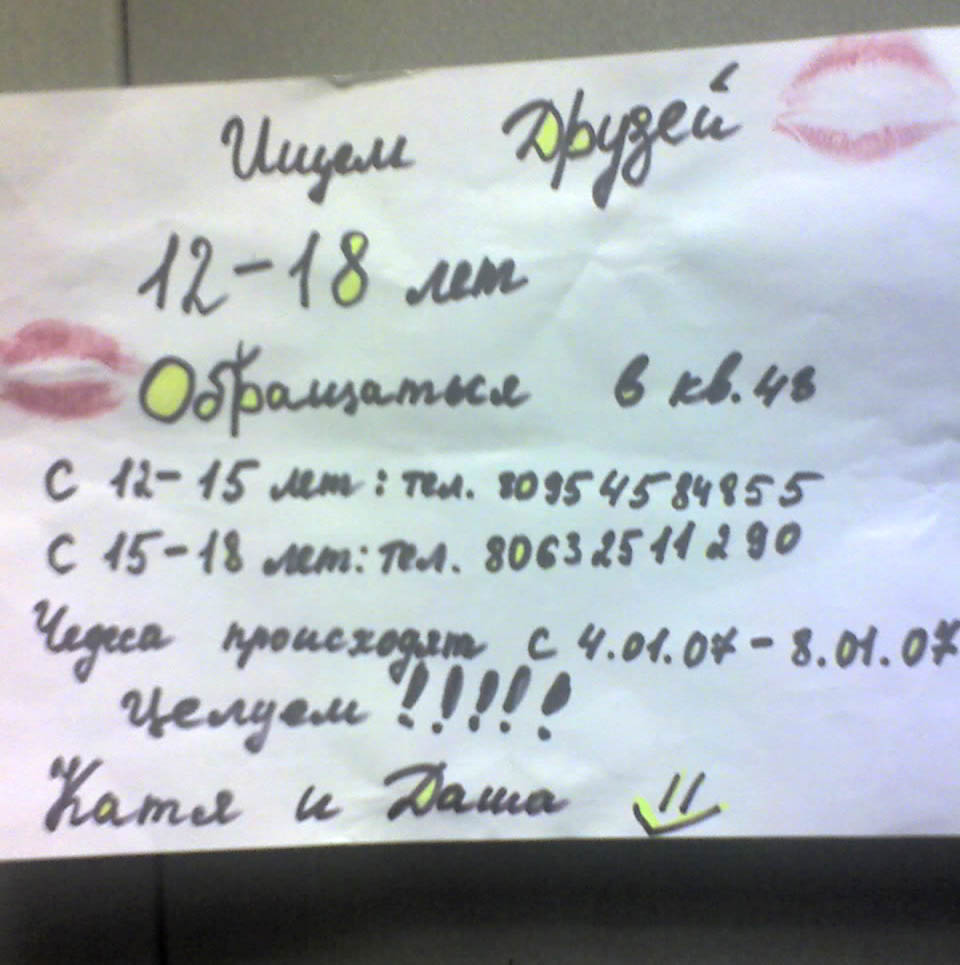 Ищем Друзей
12-18 лет
Обращаться в кв. 48
С 12-15 лет: тел. 80954584855
С 15-18 лет: тел. 80632511290
Чедеса происходят с 4.01.07-8.01.07
Целуем!!!!!
Катя и Даша